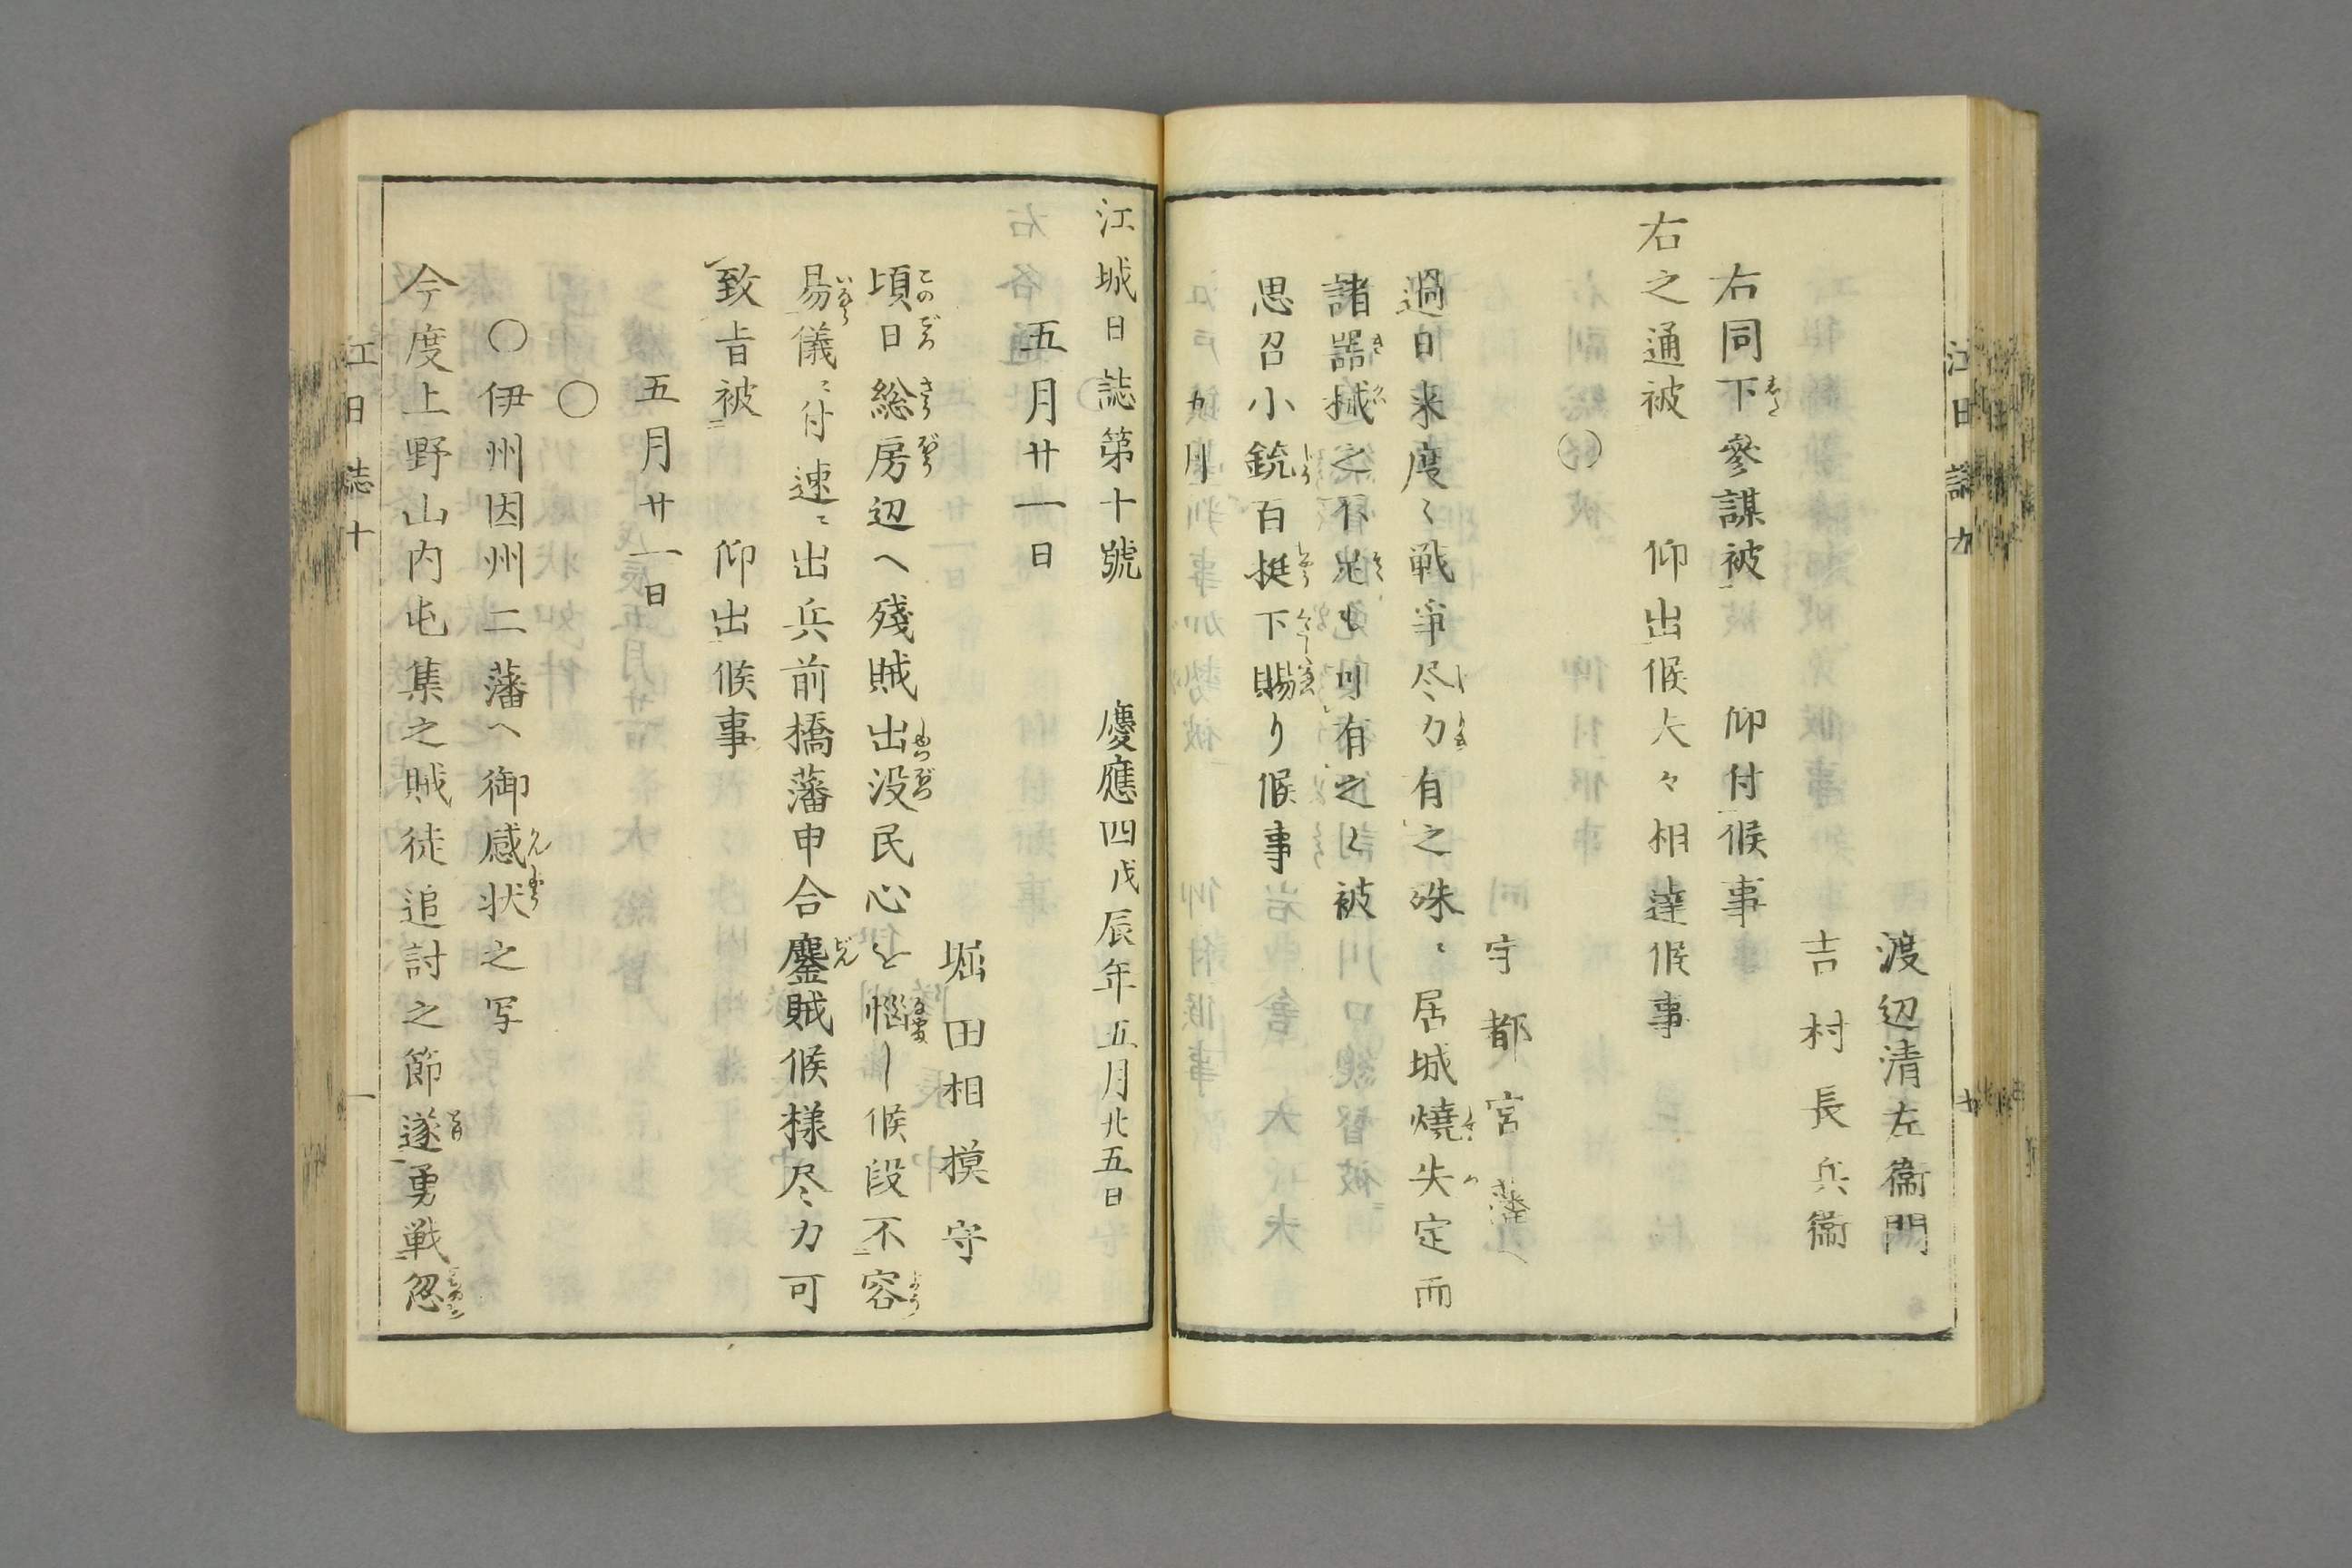 渡辺清左衞門
吉村長兵衞
右同下參謀被　仰付候事
右之通被　仰出候大々相達候事
〇
宇都宮藩へ
過日来度〻戦爭尽力有之殊ニ居城燒失定而
諸器械之不足も可有之と被
思召小銃百挺下賜り候事
九月
江日誌九
江城日誌第十號　慶應四戊辰年五月廿五日
五月廿一日
堀田相摸守
頃日総房辺へ殘賊出没民心を惱し候段不容
易儀ニ付速ニ出兵前橋藩申合鏖賊候様尽力可
致旨被　仰出候事
五月廿一日
〇
〇伊州因州二藩へ御感状之写
今度上野山内屯集之賊徒追討之節遂勇戦忽
江日誌十　一